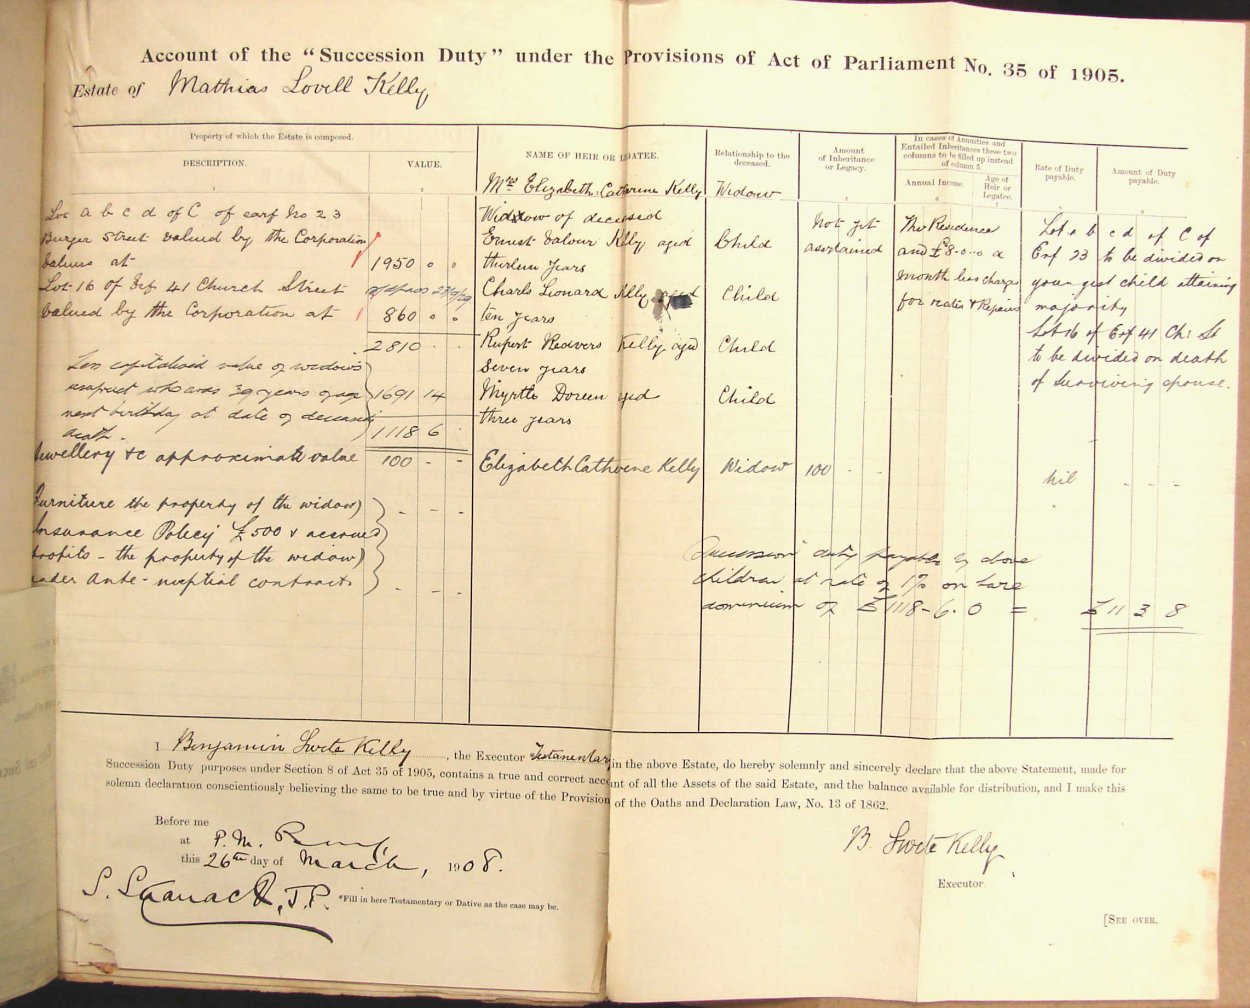 Account of the "Succession Duty" under the Provisions of Act of Parliament No. 35 of 1905.
Estate of Mathias Lovell Kelly
Property of which the Estate is composed.
DESCRIPTION.
VALUE.
NAME OF HEIR OR LEGATEE.
Relationship to the deceased.
Amount of Inheritance or Legacy.
In cases of Annuities and Entailed Inheritances these two columns to be filled up instead of column 5.
Annual Income.
Age of Heir or Legatee.
Rate of Duty payable.
Amount of Duty payable.
Lot a b c d of C of earf No 23
Burger Street valued by the Corporation
values at 1950 " "
Lot 16 of Erf 41 Church Street
valued by the Corporation at 860 " "
2810 - -
Less capitalised value of widow's
usufruct who was 39 years of age 1691 14
next birthday at date of deceased
death. 1118 6
Jewellery &c approximate value 100 - -
Furniture the property of the widow) - - -
Insurance Policy £500 & accrued
profits - the property of the widow)
under Ante-nuptial contract - - -
Mrs Elizabeth Catherine Kelly Widow
Widow of deceased
Ernest Valour Kelly aged Child
thirteen years
Charls Leonard Kelly aged Child
ten years
Rupert Redvers Kelly aged Child
seven years
Myrtle Doreen aged Child
three years
Elizabeth Catherine Kelly Widow 100 - - nil - - -
Not yet
ascertained
The Residence
and £8.0.0 a
month less charges
for rates & Repairs
Lot a b c d of C of
Erf 23 to be divided on
youngest child attaining
majority
Lot 16 of Erf 41 Ch: St
to be divided on death
of surviving spouse.
Succession duty payable by above
children at rate of 1% on bare
dominium of £1118-6.0 = £11 3 8
I Benjamin Swete Kelly, the Executor *Testamentary in the above Estate, do hereby solemnly and sincerely declare that the above Statement, made for
Succession Duty purposes under Section 8 of Act 35 of 1905, contains a true and correct account of all the Assets of the said Estate, and the balance available for distribution, and I make this
solemn declaration conscientiously believing the same to be true and by virtue of the Provision of the Oaths and Declaration Law, No. 13 of 1862.
Before me
at P. M. Burg,
this 26th day of March, 1908.
J.P.
*Fill in here Testamentary or Dative as the case may be.
B. Swete Kelly
Executor.
[SEE OVER.